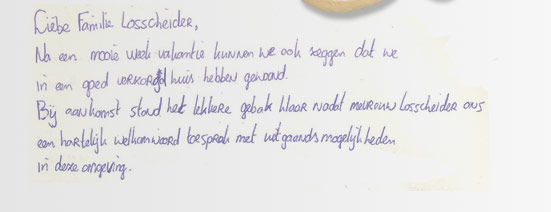 Liebe Familie Losscheider,
Na een mooie week vakantie kunnen we ook zeggen dat we
in een goed verzorgd huis hebben gewoond.
Bij aankomst stond het lekkere gebak klaar nadat mevrouw Losscheider ons
een hartelijk welkomwoord toesprak met uitgaandsmogelijkheden
in deze omgeving.